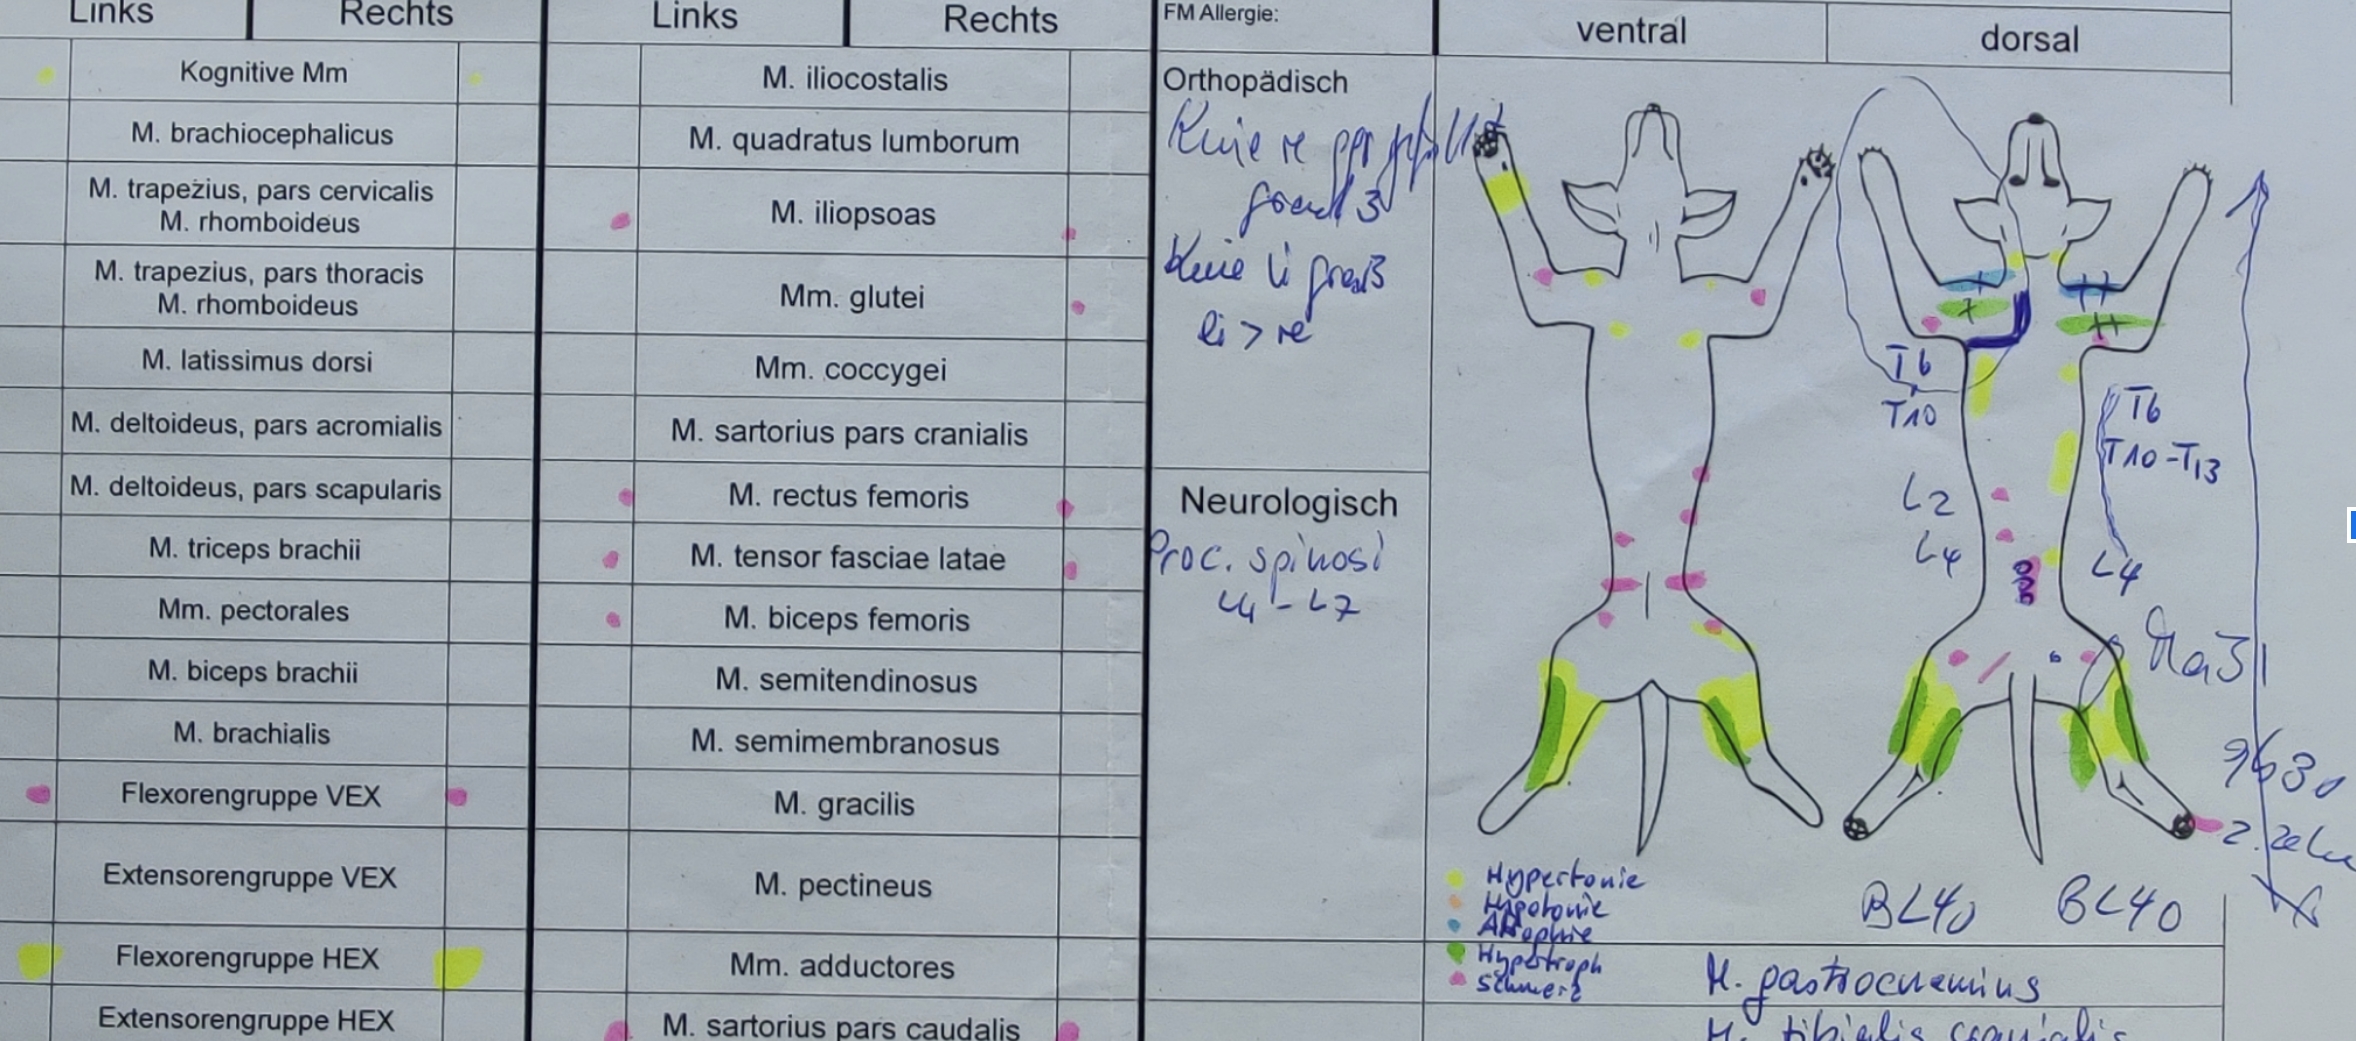 Links Rechts
Kognitive Mm
M. brachiocephalicus
M. trapezius, pars cervicalis
M. rhomboideus
M. trapezius, pars thoracis
M. rhomboideus
M. latissimus dorsi
M. deltoideus, pars acromialis
M. deltoideus, pars scapularis
M. triceps brachii
Mm. pectorales
M. biceps brachii
M. brachialis
Flexorengruppe VEX
Extensorengruppe VEX
Flexorengruppe HEX
Extensorengruppe HEX
Links Rechts
M. iliocostalis
M. quadratus lumborum
M. iliopsoas
Mm. glutei
Mm. coccygei
M. sartorius pars cranialis
M. rectus femoris
M. tensor fasciae latae
M. biceps femoris
M. semitendinosus
M. semimembranosus
M. gracilis
M. pectineus
Mm. adductores
M. sartorius pars caudalis
FM Allergie:
Orthopädisch
Knie re
3
Knie li
li > re
Neurologisch
Proc. spinosi
L4 - L7
ventral dorsal
+ ++
+ ++
T6
T10
T6
T10 - T13
L2
L4
L4
BL40 BL40
Hypertonie
Hypotonie
Atrophie
Hypertroph
Schmerz
M. gastrocnemius
M. tibialis cranialis